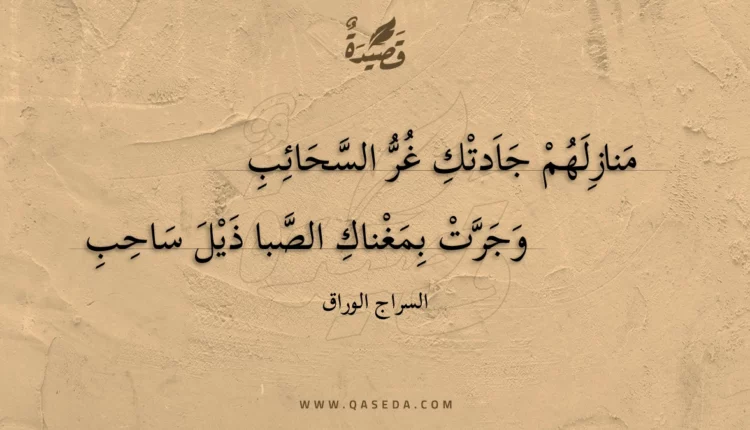 قَصِيْدَةٌ
مَنازِلَهُمْ جَاَدتْكِ غُرُّ السَّحَائِبِ
وَجَرَّتْ بِمَغْناكِ الصَّبا ذَيْلَ سَاحِبِ
السراج الوراق
WWW.QASEDA.COM